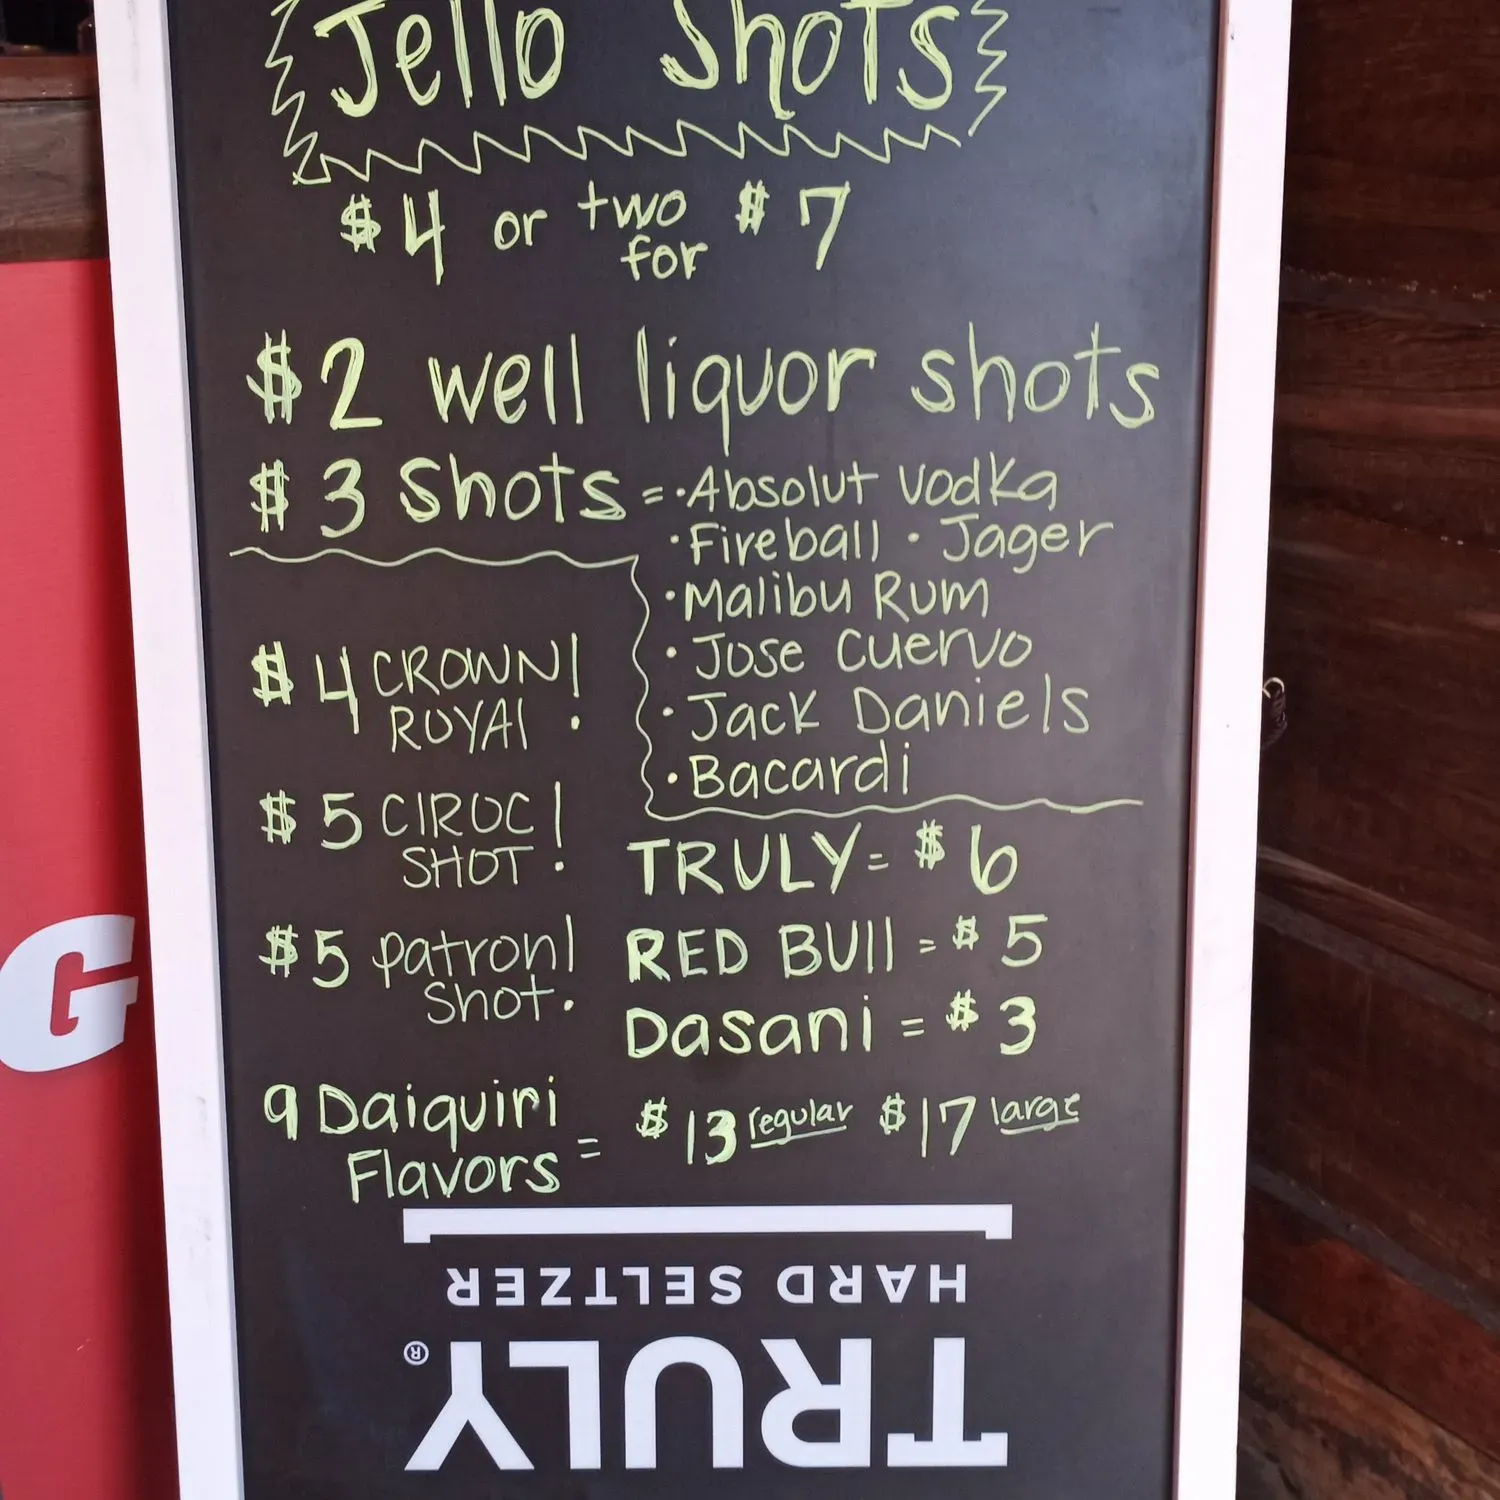 Jello Shots
$4 or two for $7
$2 well liquor shots
$3 Shots = • Absolut Vodka
• Fireball • Jager
• Malibu Rum
• Jose Cuervo
• Jack Daniels
• Bacardi
$4 CROWN!
ROYAl
$5 CIROC!
SHOT
$5 Patron!
Shot
TRULY = $6
RED BUll = $5
Dasani = $3
9 Daiquiri
Flavors = $13 regular $17 large
HARD SELTZER
TRULY®
G